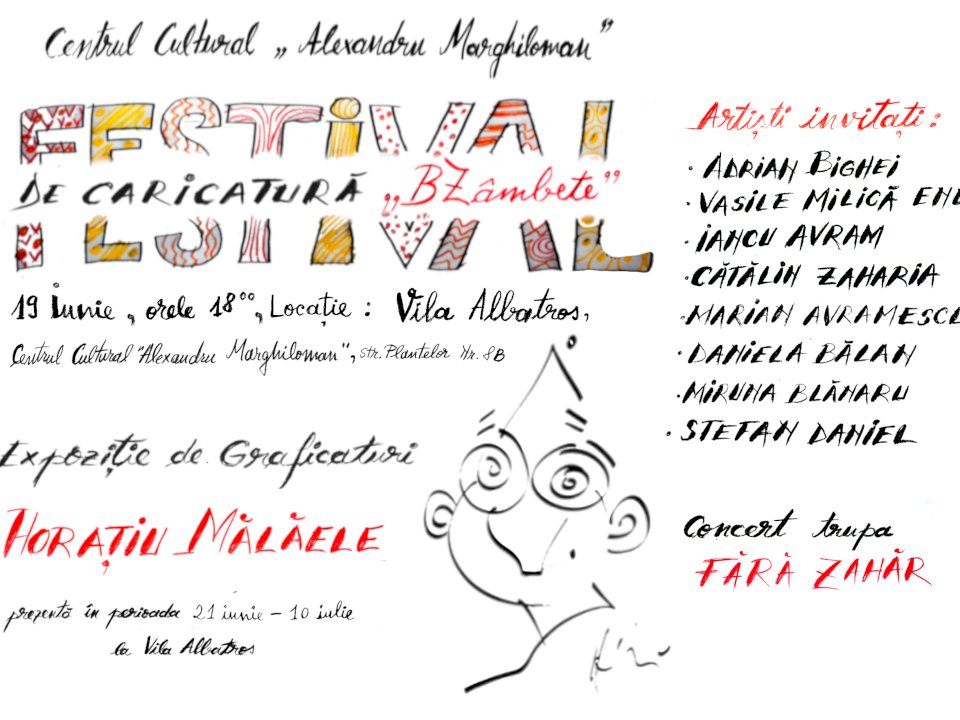 Centrul Cultural „Alexandru Marghiloman”
FESTIVAL
DE CARICATURĂ „BZâmbete”
19 Iunie, orele 18⁰⁰, Locație: Vila Albatros,
Centrul Cultural "Alexandru Marghiloman", str. Plantelor Nr. 8B
Expoziție de Graficaturi
HORAȚIU MĂLĂELE
prezentă în perioada 21 iunie - 10 iulie
la Vila Albatros
Artiști invitați:
· ADRIAN BIGHEI
· VASILE MILICĂ
· IANCU AVRAM
· CĂTĂLIN ZAHARIA
· MARIAN AVRAMESCU
· DANIELA BĂLAN
· MIRUNA BLĂNARU
· STEFAN DANIEL
Concert trupa
FĂRĂ ZAHĂR